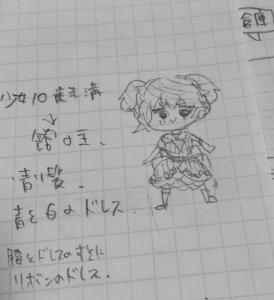 少女10歳未満
↓
館の主.
青い髪.
青と白のドレス.
腰とドレスのすそに
リボンのドレス.
倉庫